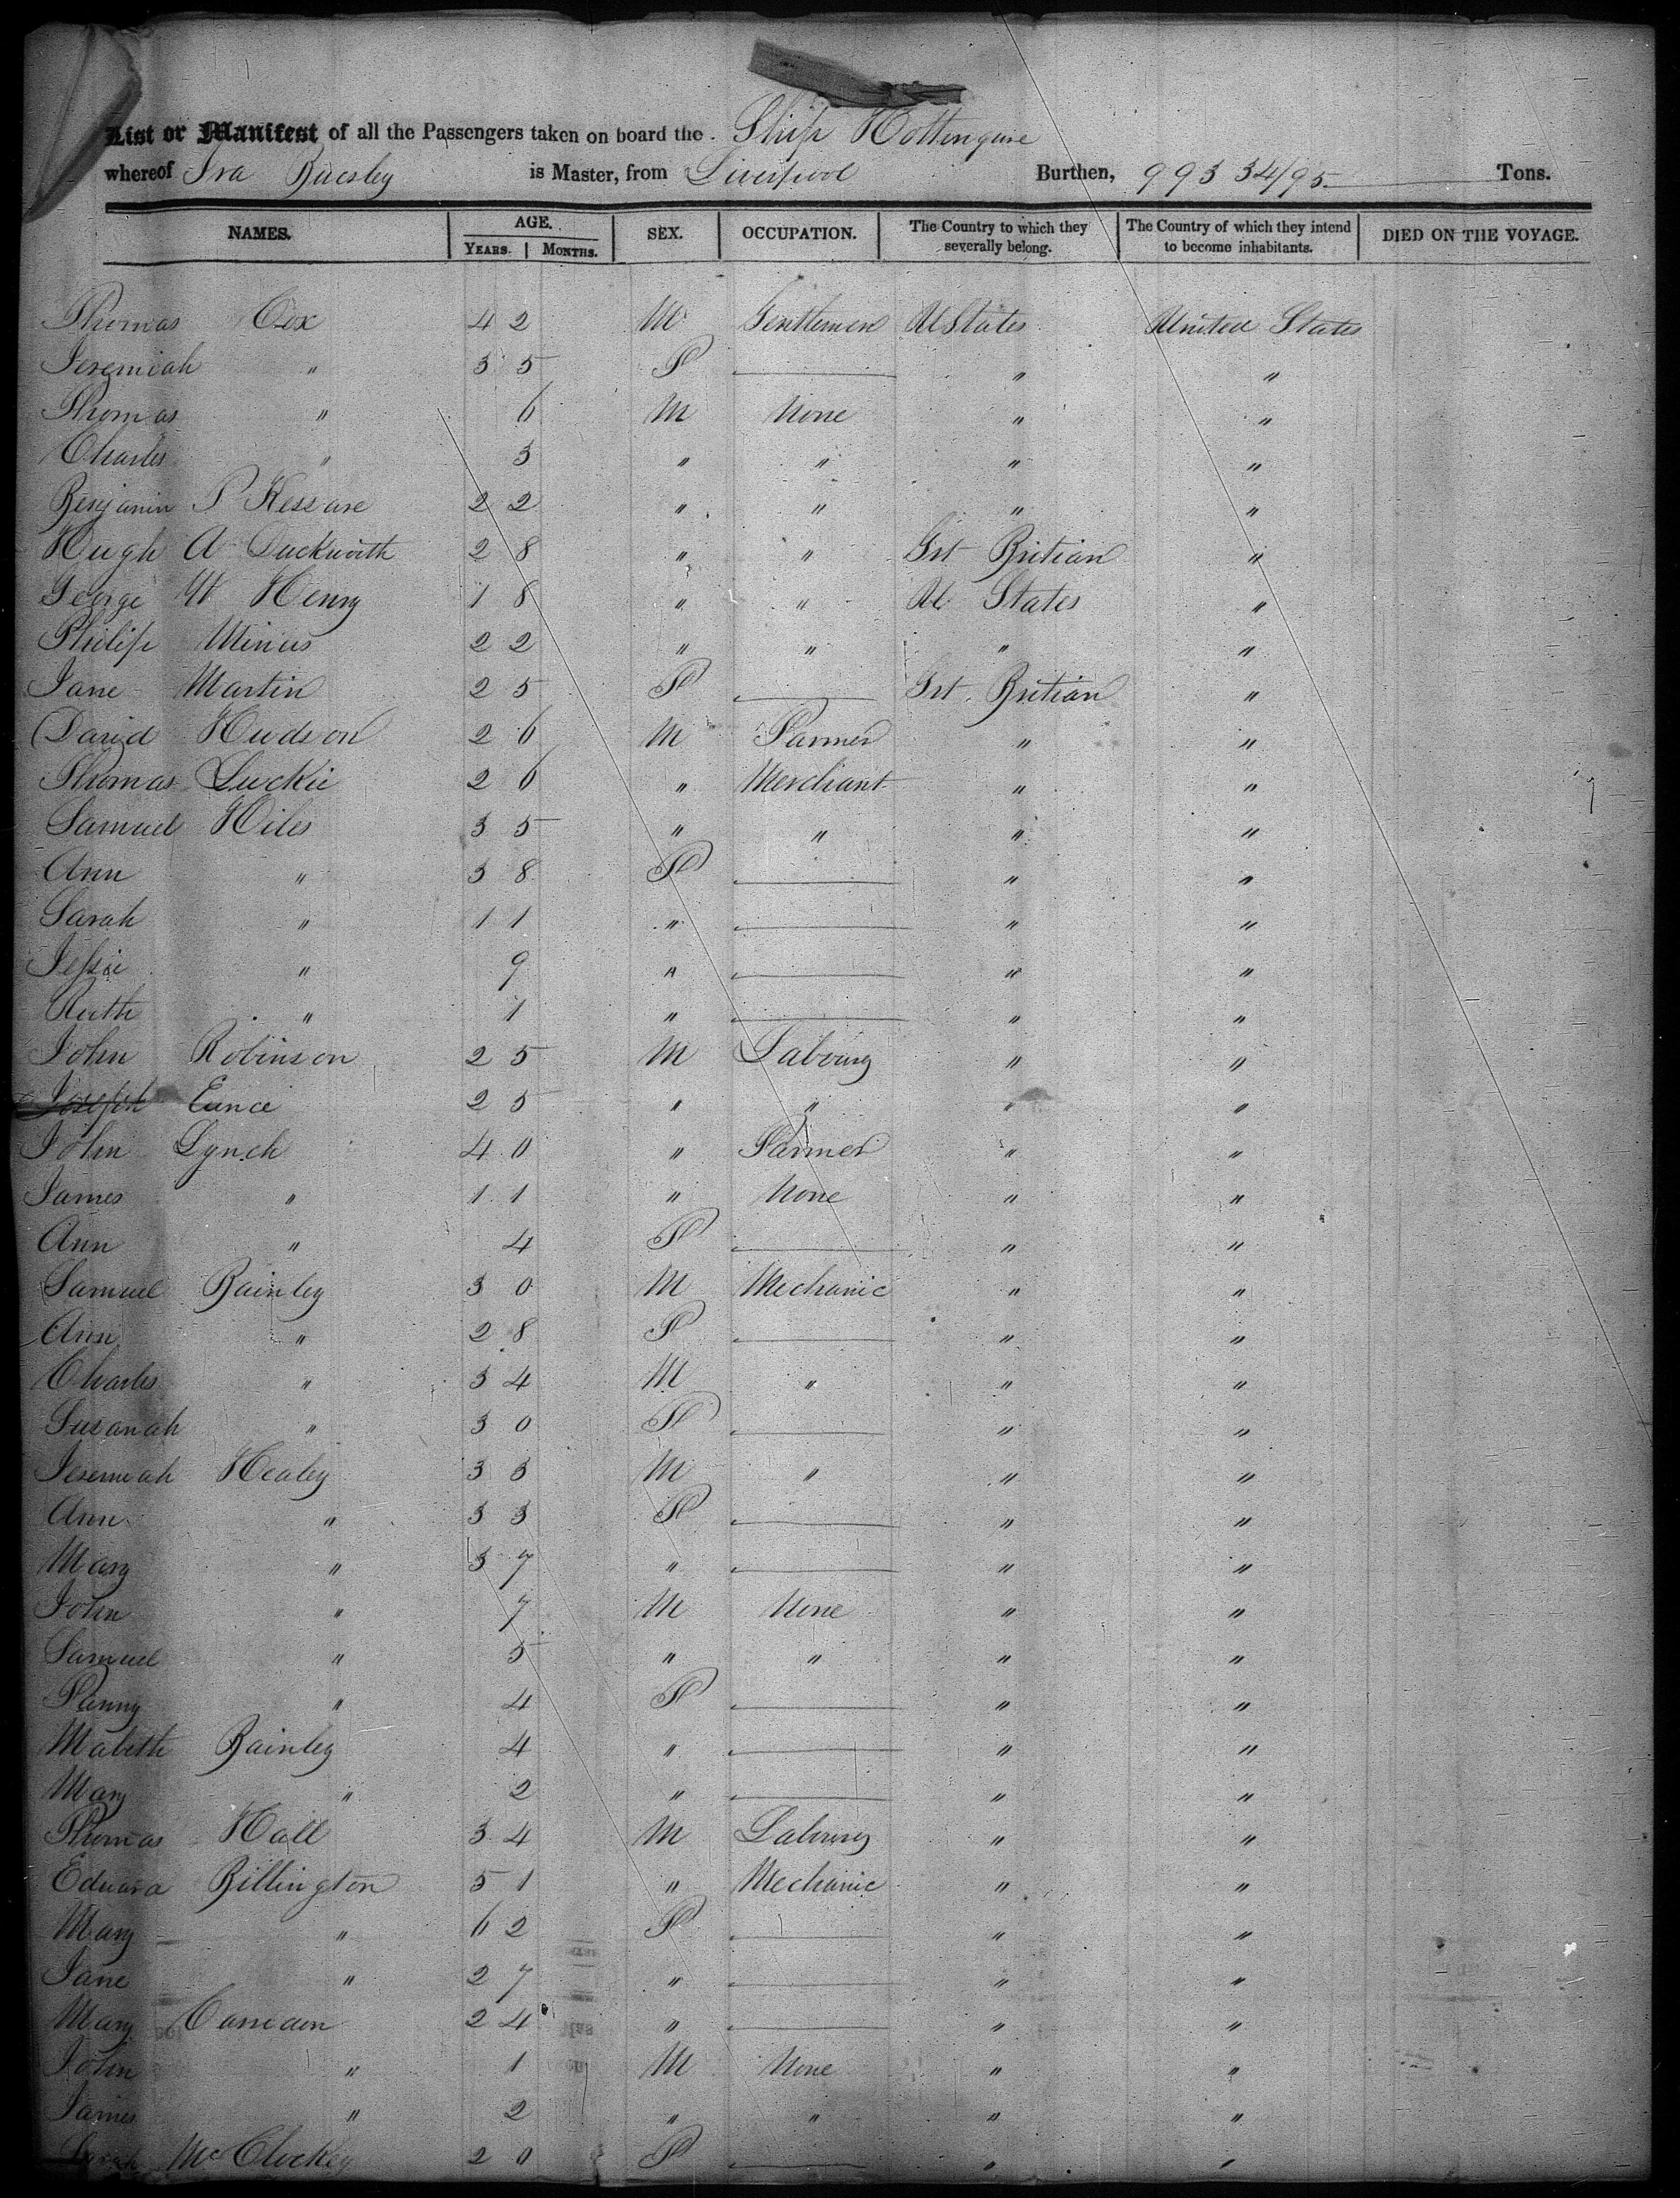 List or Manifest of all the Passengers taken on board the Ship Hottinguer
whereof Ira Bursley is Master, from Liverpool Burthen, 993 34/95 Tons.
NAMES. AGE. SEX. OCCUPATION. The Country to which they severally belong. The Country of which they intend to become inhabitants. DIED ON THE VOYAGE.
YEARS. MONTHS.
Thomas Cox 42 M Gentlemen U States United States
Jeremiah " 35 F " "
Thomas " 6 M None " "
Charles " 3 " " " "
Benjamin P 22 " " " "
Hugh A Duckworth 28 " " Grt Britian "
George W Henry 18 " " U. States "
Philip Minus 22 " " " "
Jane Martin 25 F Grt. Britian "
David Hudson 26 M Farmer " "
Thomas Luckie 26 " Merchant " "
Samuel Hiles 35 " " " "
Ann " 38 F " "
Sarah " 11 " " "
Jessie " 9 " " "
Ruth " 1 " " "
John Robinson 25 M Labourg " "
Joseph Eunce 25 " " " "
John Lynch 40 " Farmer " "
James " 11 " None " "
Ann " 4 F " "
Samuel Bainley 30 M Mechanic " "
Ann " 28 F " "
Charles " 34 M " " "
Susanah " 30 F " "
Jeremiah Healey 33 M " " "
Ann " 33 F " "
Mary " 37 " " "
John " 7 M None " "
Samuel " 5 " " " "
Fanny " 4 F " "
Mabeth Bainley 4 " " "
Mary " 2 " " "
Thomas Hall 34 M Labourg " "
Edward Billington 51 " Mechanic " "
Mary " 62 F " "
Jane " 27 " " "
Mary 24 " " "
John " 1 M None " "
James " 2 " " " "
Sarah McCluckey 20 F " "